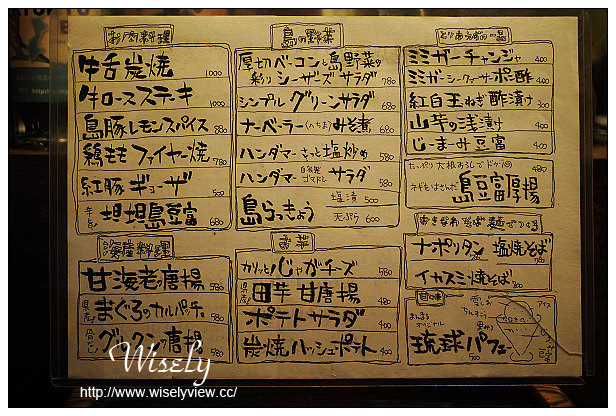 お肉料理
牛舌炭焼 1000
牛ロースステーキ 1000
島豚レモンスパイス 880
鶏ももファイヤー焼 780
紅豚ギョーザ 500
坦坦島豆富 680
海鮮料理
甘海老の唐揚 580
県産!まぐろのカルパッチョ 580
グルクンの唐揚 580
島の野菜
厚切ベーコンと島野菜の
彩りシーザーズサラダ 780
シンプルグリーンサラダ 680
ナーベーラー(へちま)みそ煮 680
ハンダマーさっと塩炒め 580
ハンダマー自家製ゴマドレサラダ 580
島らっきょう 塩漬 500
天ぷら 600
お芋
カリッとじゃがチーズ 580
県産!田芋甘唐揚 480
ポテトサラダ 400
炭焼ハッシュポテト 400
とりあえずの一品
ミミガーチャンジャ 400
ミミガーシークヮーサーポン酢 400
紅白玉ねぎ酢漬け 300
山芋の浅漬け 400
じーまーみ豆富 400
たっぷり大根おろしでドウゾ 480
ネギもはさんだ 島豆富厚揚
ナポリタン 塩焼そば
イカスミ焼そば
甘味
まんまる
オリジナル
琉球パフェ 500
アイス
黒みつ
Wisely
http://www.wiselyview.cc/